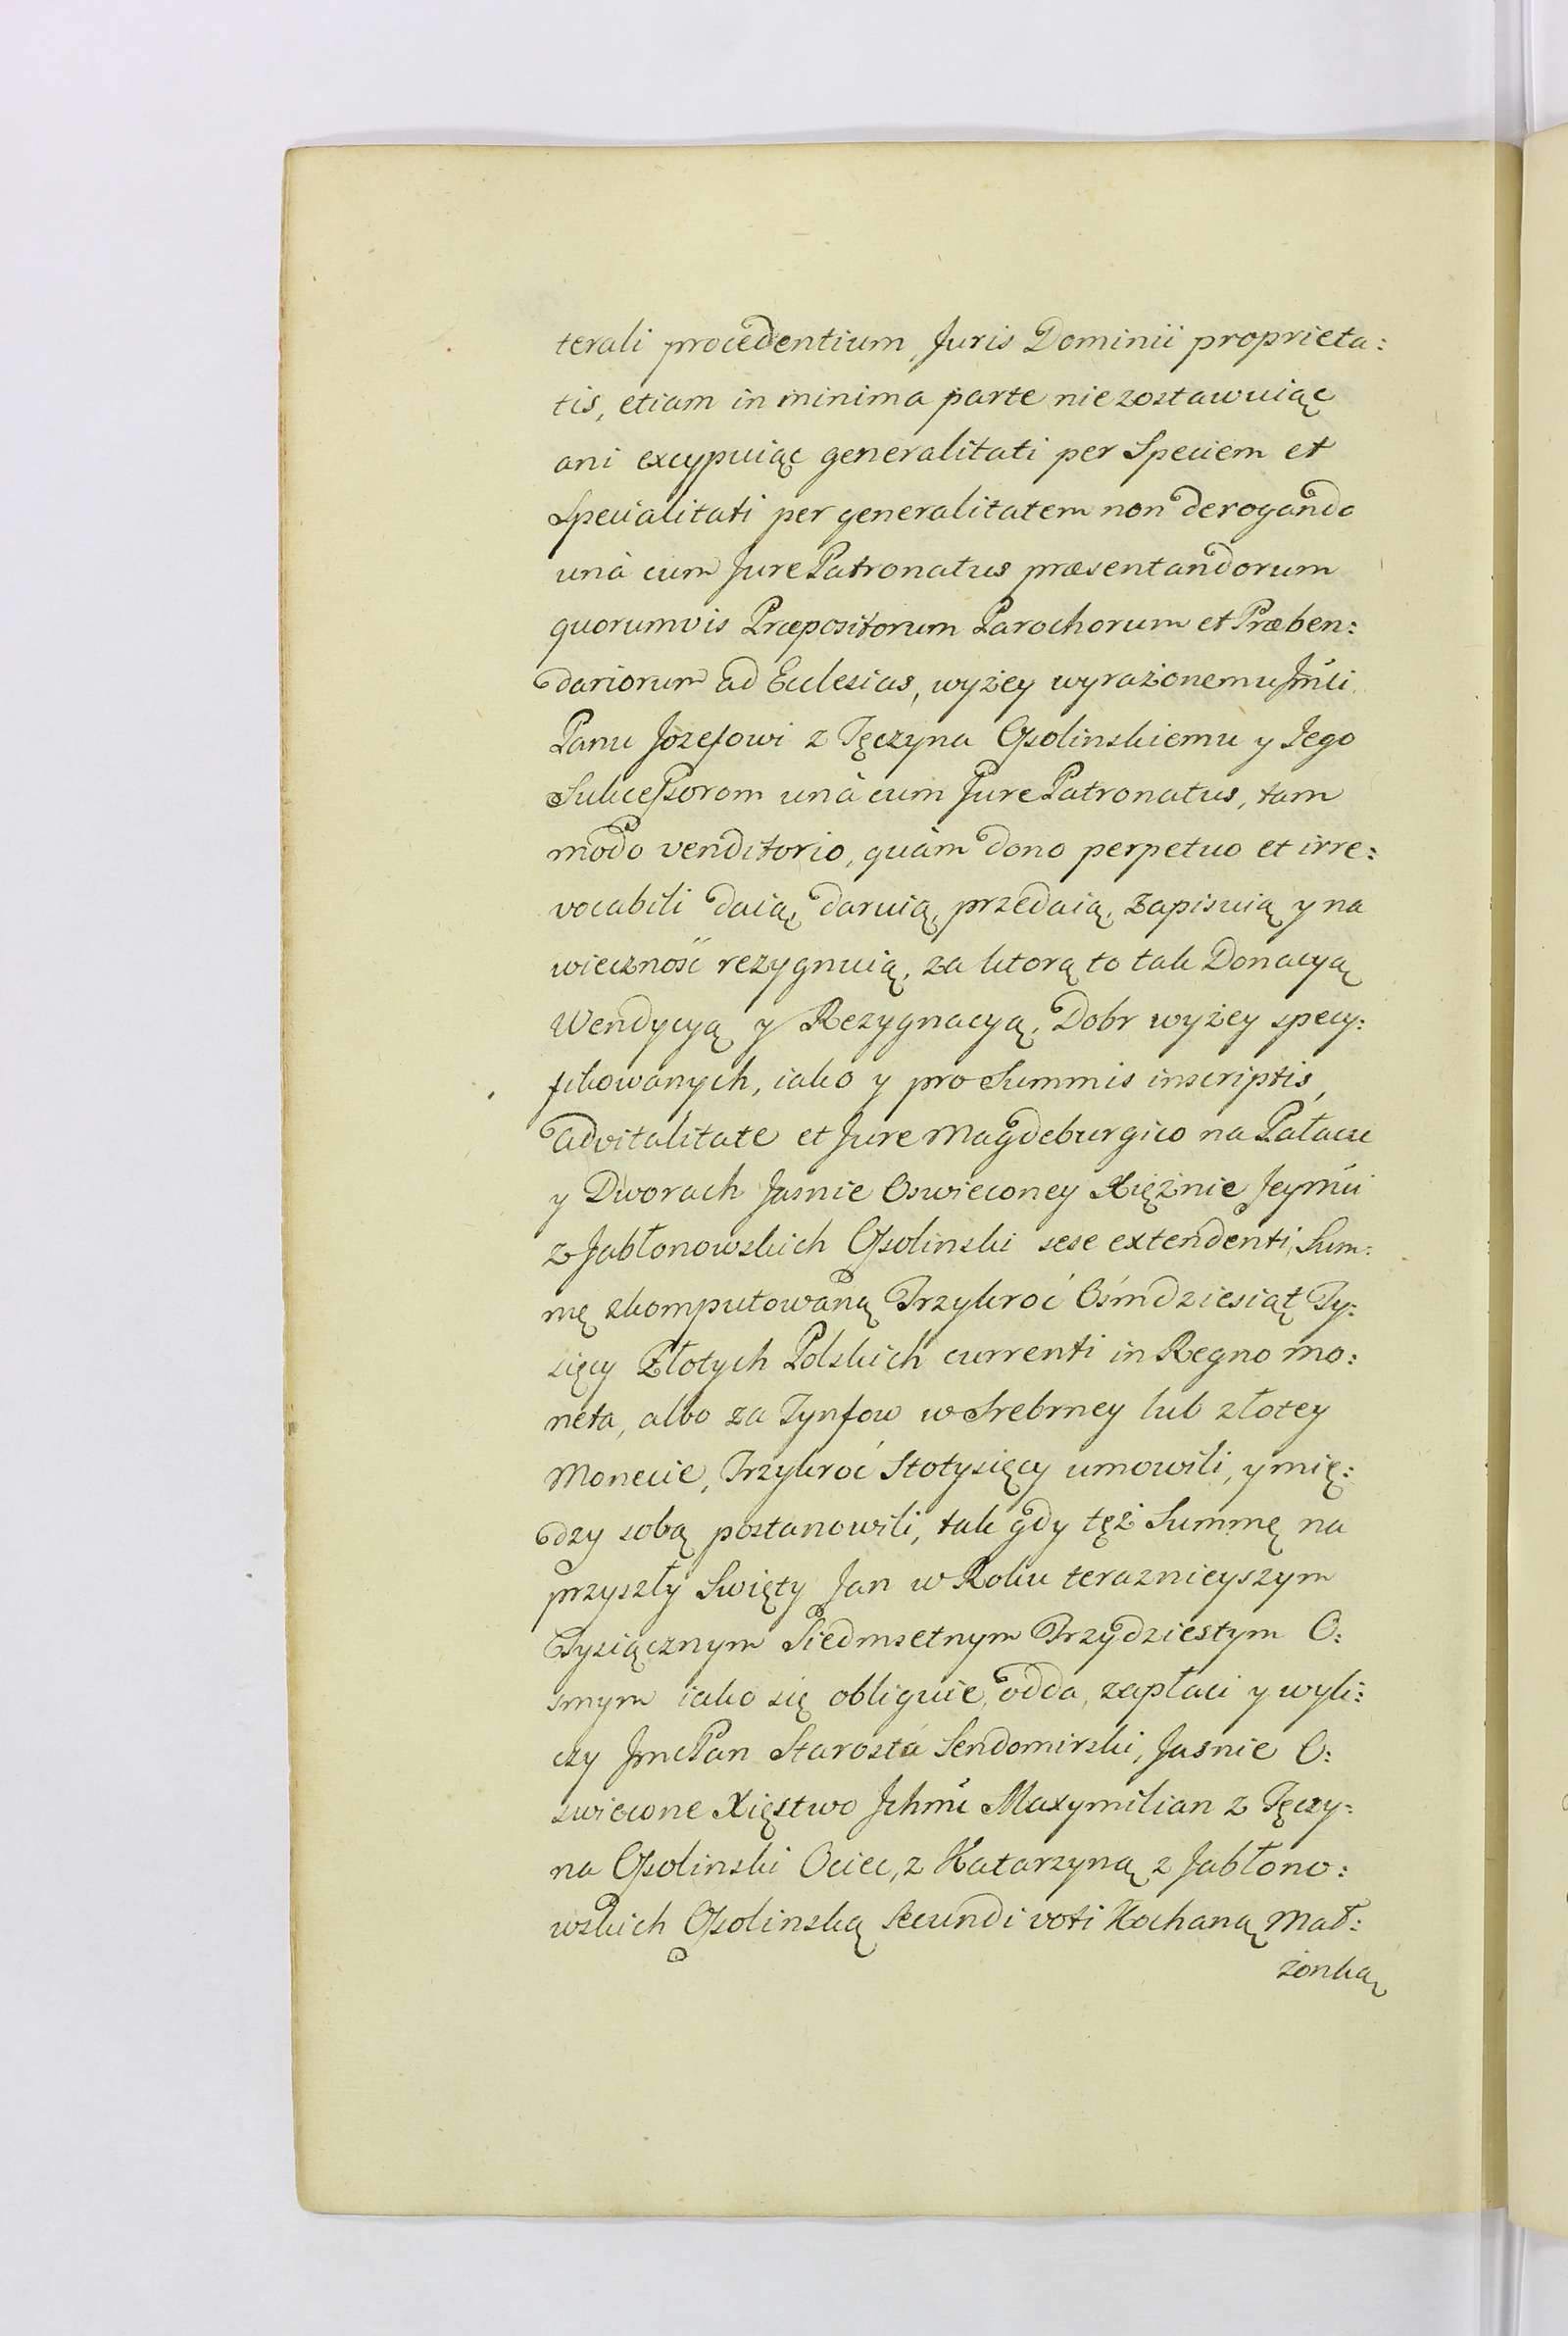 terali procedentium, Juris Dominii proprieta:
tis, etiam in minima parte nie zostawuiąc
ani excypuiąc generalitati per Speciem et
Specialitati per generalitatem non derogando
unà cum Jure Patronatus præsentandorum
quorumvis Præpositorum Parochorum et Præben:
dariorum ad Ecclesias, wyżey wyrażonemu Jmći
Panu Jozefowi z Tęczyna Ossolinskiemu y Jego
Sukcessorom unà cum Jure Patronatus, tam
modo venditorio, quàm dono perpetuo et irre:
vocabili daią, daruią, przedaią, zapisuią y na
wieczność rezygnuią, za ktorą to tak Donacyą
Wendycyą y Rezygnacyą, Dobr wyżey specy:
fikowanych, iako y pro Summis inscriptis,
advitalitate et Jure Magdeburgico na Pałacu
y Dworach Jasnie Oswieconey Xiężnie Jeymći
z Jabłonowskich Ossolinski sese extendenti, Sum:
mę skomputowaną Trzykroć Ośmdziesiąt Ty:
sięcy Złotych Polskich currenti in Regno mo:
neta, albo za Tynfow w Srebrney lub złotey
Monecie, Trzykroć Stotysięcy umowili, y mię:
dzy sobą postanowili, tak gdy tęż Summę na
przyszły Swięty Jan w Roku teraznieyszym
Tysiącznym Siedmsetnym Trzydziestym O:
smym iako się obliguie, odda, zapłaci y wyli:
czy Jmc Pan Starosta Sendomirski, Jasnie O:
swiecone Xięstwo Ichmć Maxymilian z Tęczy:
na Ossolinski Ociec, z Katarzyną z Jabłono:
wskich Ossolinską secundi voti Kochaną Mał:
żonką